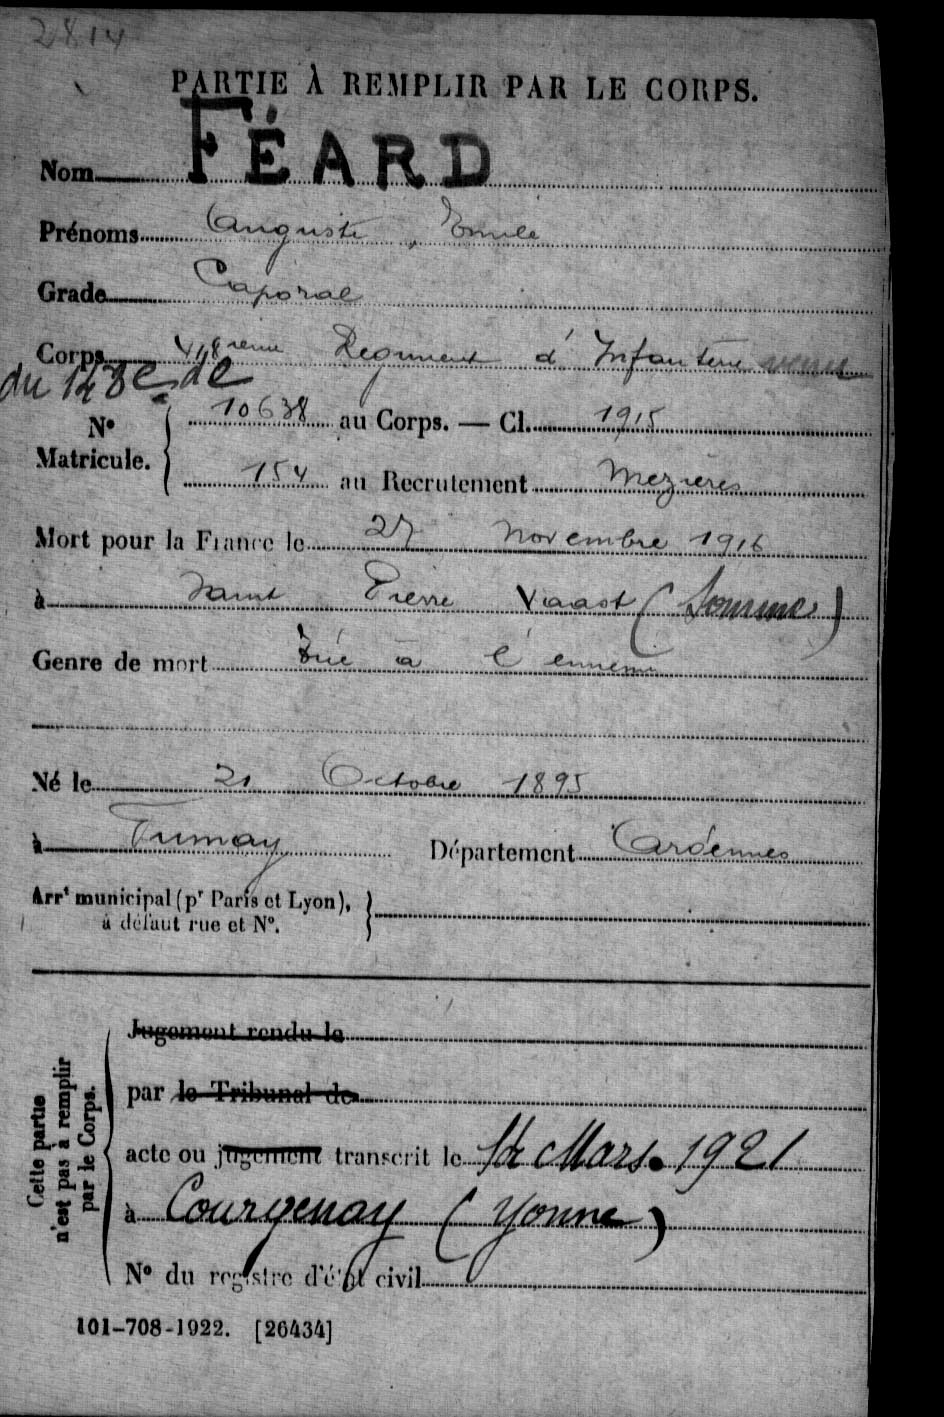 2814
PARTIE À REMPLIR PAR LE CORPS.
Nom FÉARD
Prénoms Auguste, Emile
Grade Caporal
Corps 418ème Régiment d'Infanterie venu
du 148e de
No
Matricule.
10638 au Corps. — Cl. 1915
154 au Recrutement Mezières
Mort pour la France le 27 novembre 1916
à Saint Pierre Vaast (Somme)
Genre de mort Tué à l'ennemi
Né le 21 Octobre 1895
à Fumay Département Ardennes
Arrt municipal (pr Paris et Lyon),
à défaut rue et No.
Cette partie
n'est pas à remplir
par le Corps.
Jugement rendu le
par le Tribunal de
acte ou jugement transcrit le Mars. 1921
à Courgenay (Yonne)
No du registre d'état civil
101-708-1922. [26434]